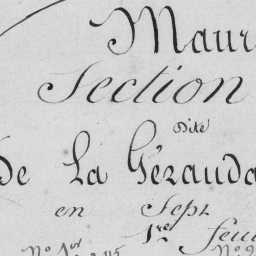 Maur
Section
Dite
de La Gérauda
en Sept
1re feui
No 1er No 9